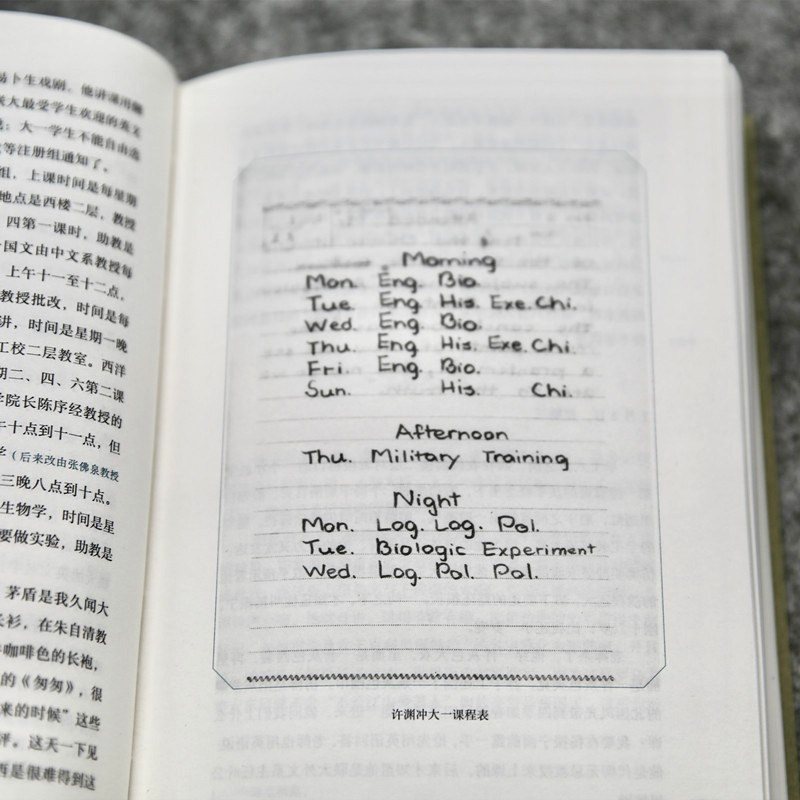 易卜生戏剧。他讲课用
大最受学生欢迎的英文
：大一学生不能自由选
等注册组通知了。
组，上课时间是每星期
地点是西楼二层，教授
四第一课时，助教是
国文由中文系教授每
上午十一至十二点，
教授批改，时间是每
讲，时间是星期一晚
工校二层教室。西洋
期二、四、六第二课
学院长陈序经教授的
午十点到十一点，但
学（后来改由张佛泉教授
三晚八点到十点。
生物学，时间是星
要做实验，助教是
茅盾是我久闻大
长衫，在朱自清教
咖啡色的长袍，
的《匆匆》，很
来的时候”这些
洋。这天一下见
西是很难得到这
Morning
Mon. Eng. Bio.
Tue. Eng. His. Exe. Chi.
Wed. Eng. Bio.
Thu. Eng. His. Exe. Chi.
Fri. Eng. Bio.
Sun. His. Chi.
Afternoon
Thu. Military Training
Night
Mon. Log. Log. Pol.
Tue. Biologic Experiment
Wed. Log. Pol. Pol.
许渊冲大一课程表